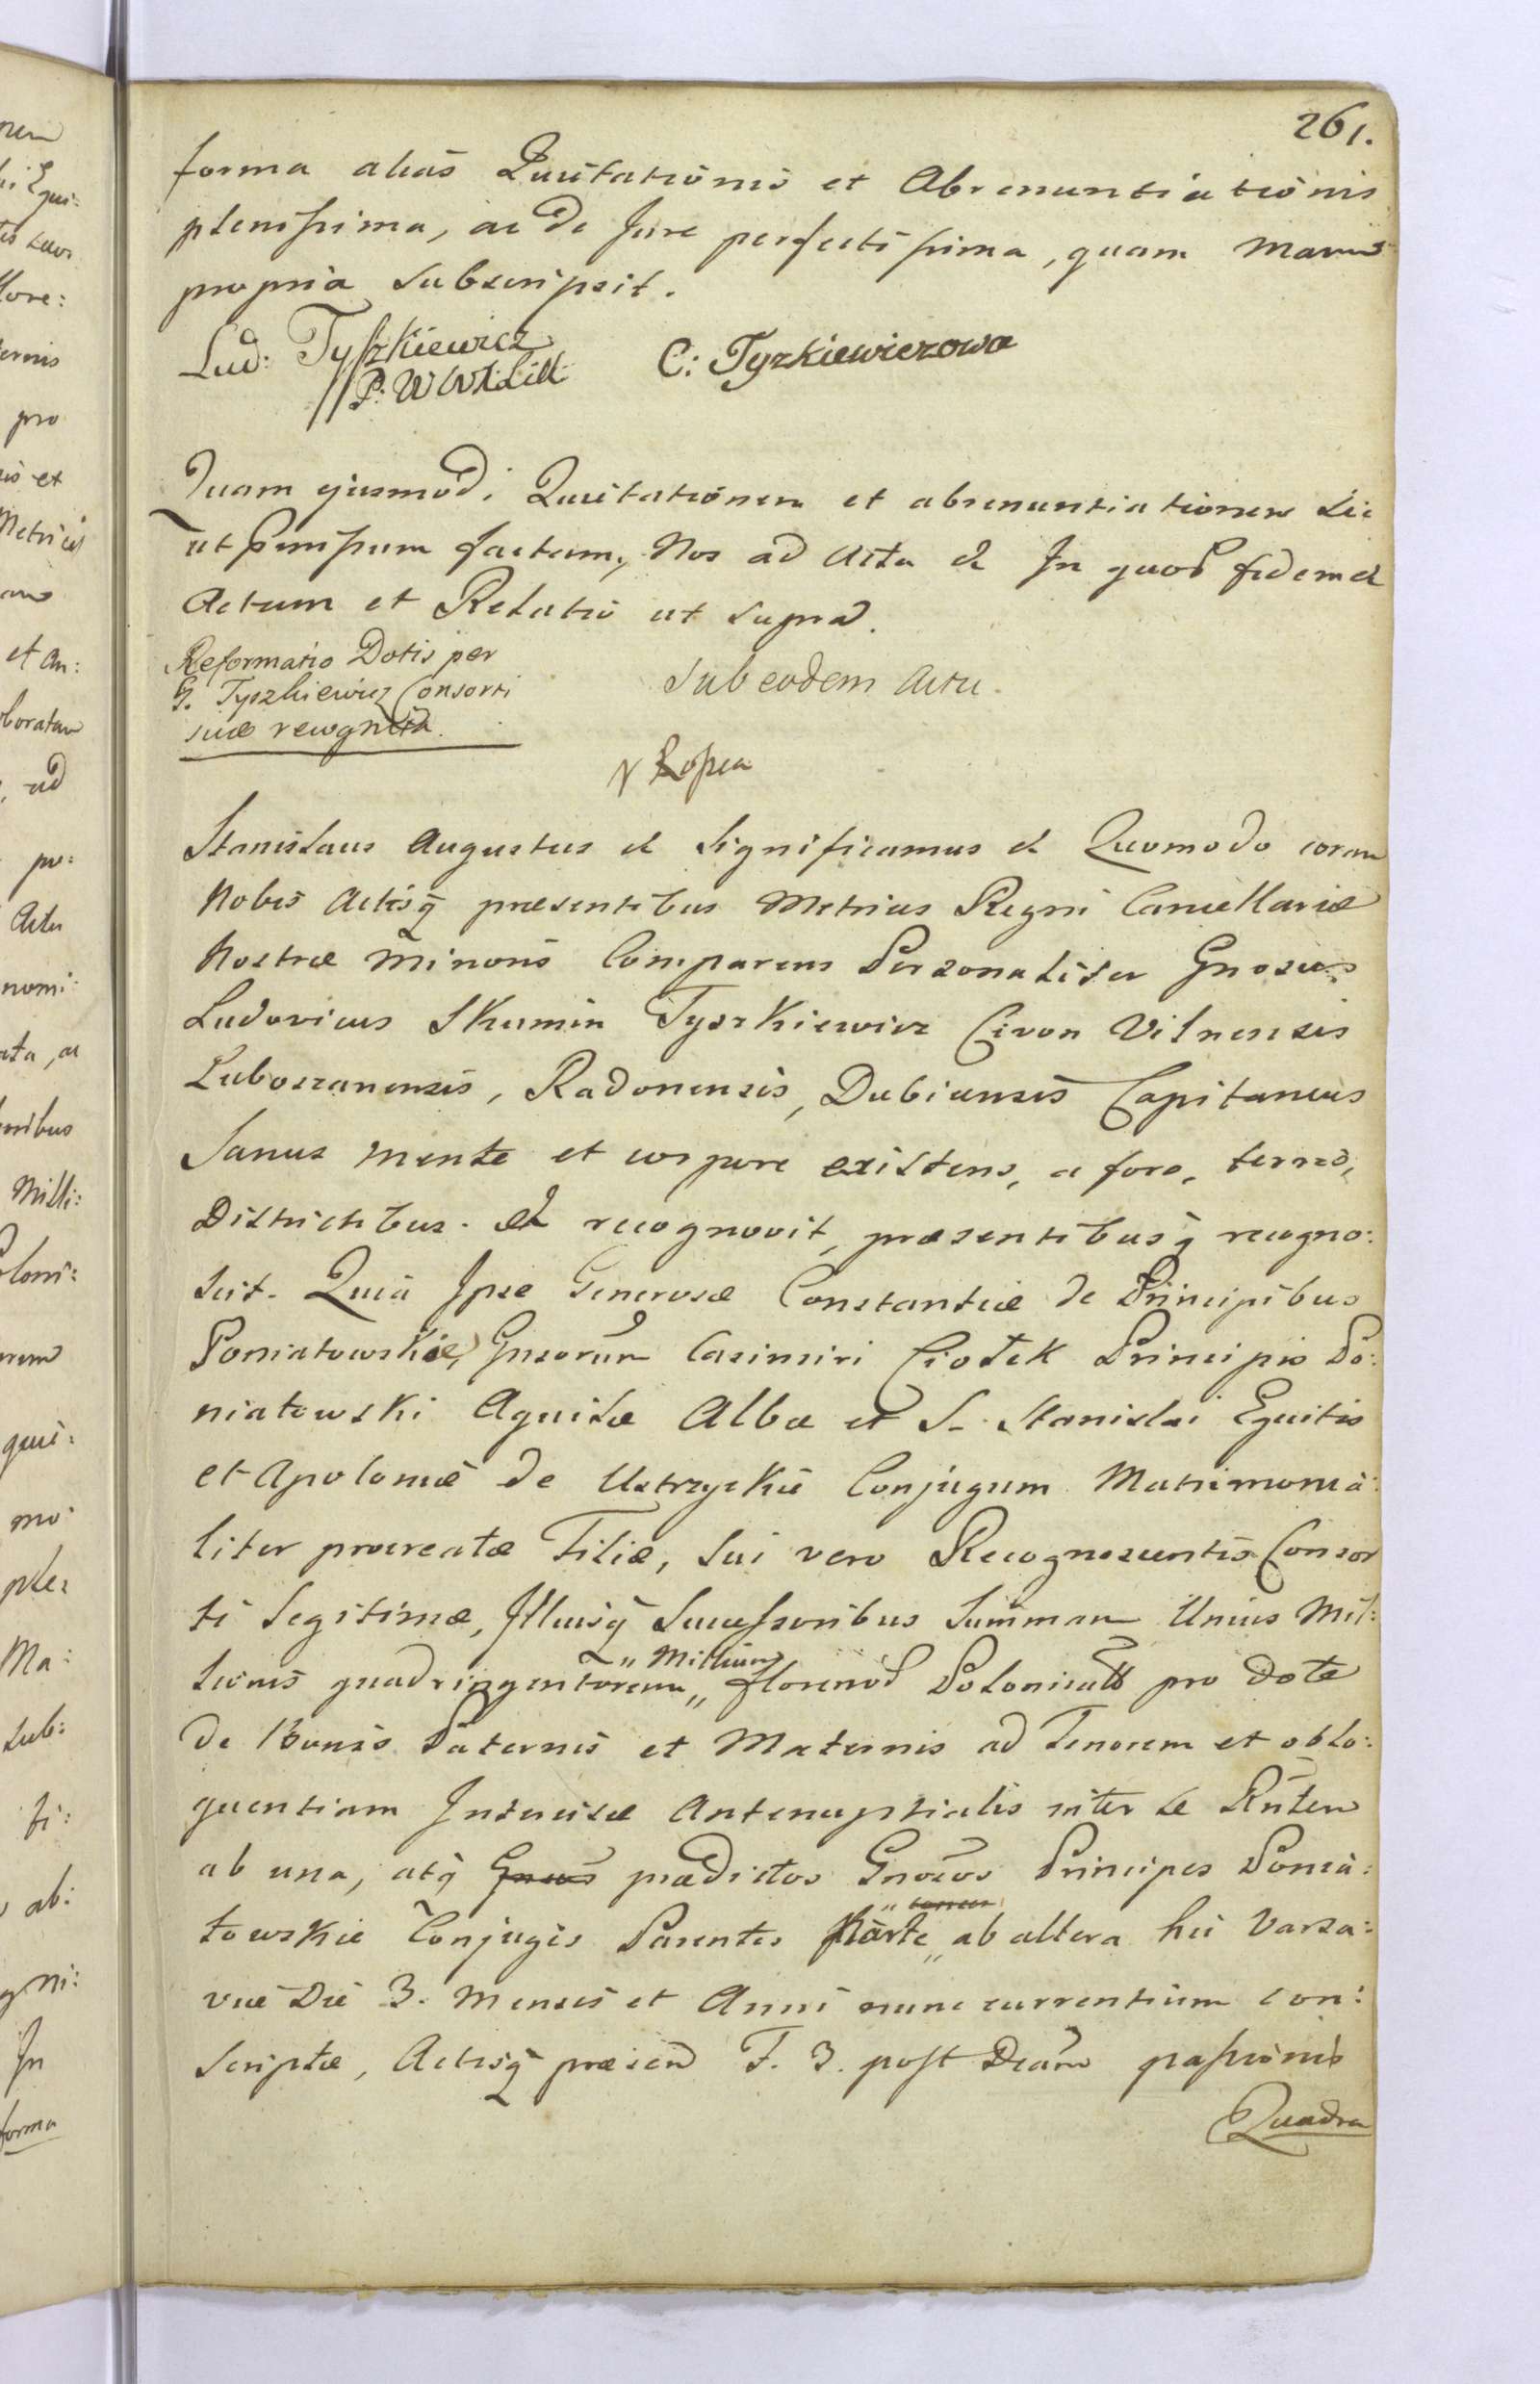 261.
forma alias Quietationis et Abrenuntiationis
plenissima, ac de Jure perfectissima, quam Manu
propria subscripsit.
Lud: Tyszkiewicz C: Tyszkiewiczowa
P: W W X Litt:
Quam ejusmodi Quietationem et abrenuntiationem sic
ut præmissum factam, Nos ad Acta & In quod fidem &
Actum et Relatio ut supra.
Reformatio Dotis per
G. Tyszkiewicz Consorti
suæ recognita.
Sub eodem Actu.
Kopia
Stanislaus Augustus & Significamus & Quomodo coram
Nobis Actisq præsentibus Metrices Regni Cancellariæ
Nostræ Minoris Comparens Personaliter Gnosus
Ludovicus Skumin Tyszkiewicz Civon Vilnensis
Luboszanensis, Radonensis, Dubicensis Capitaneus
Sanus mente et corpore existens, a foro, terris,
Districtibus & recognovit, præsentibusq recogno:
scit. Quia Ipse Generosæ Constantiæ de Principibus
Poniatowskie, Gnsorum Casimiri Ciołek Principis Po:
niatowski Aquilæ Albæ et S. Stanislai Equitis
et Apoloniæ de Ustrzyckie Conjugum Matrimonia:
liter procreatæ Filiæ, Sui vero Recognoscentis Consor
ti Legitimæ, Illiusq Successoribus Summam Unius Mil:
"Millium
lionis quadringentorum" florenor Polonicall pro dote
de Bonis Paternis et Maternis ad Tenorem et oblo:
quentiam Intercisæ Antenuptialis inter se Rnten
ab una, atq Gnosos prædictos Gnosos Principes Ponia:
towskie Conjuges Parentes Parte " ab altera hic Varsa:
viæ Die 3. Mensis et Anni nunc currentium con:
scriptæ, Actisq præsen F. 3. post Dcam passionis
Quadra